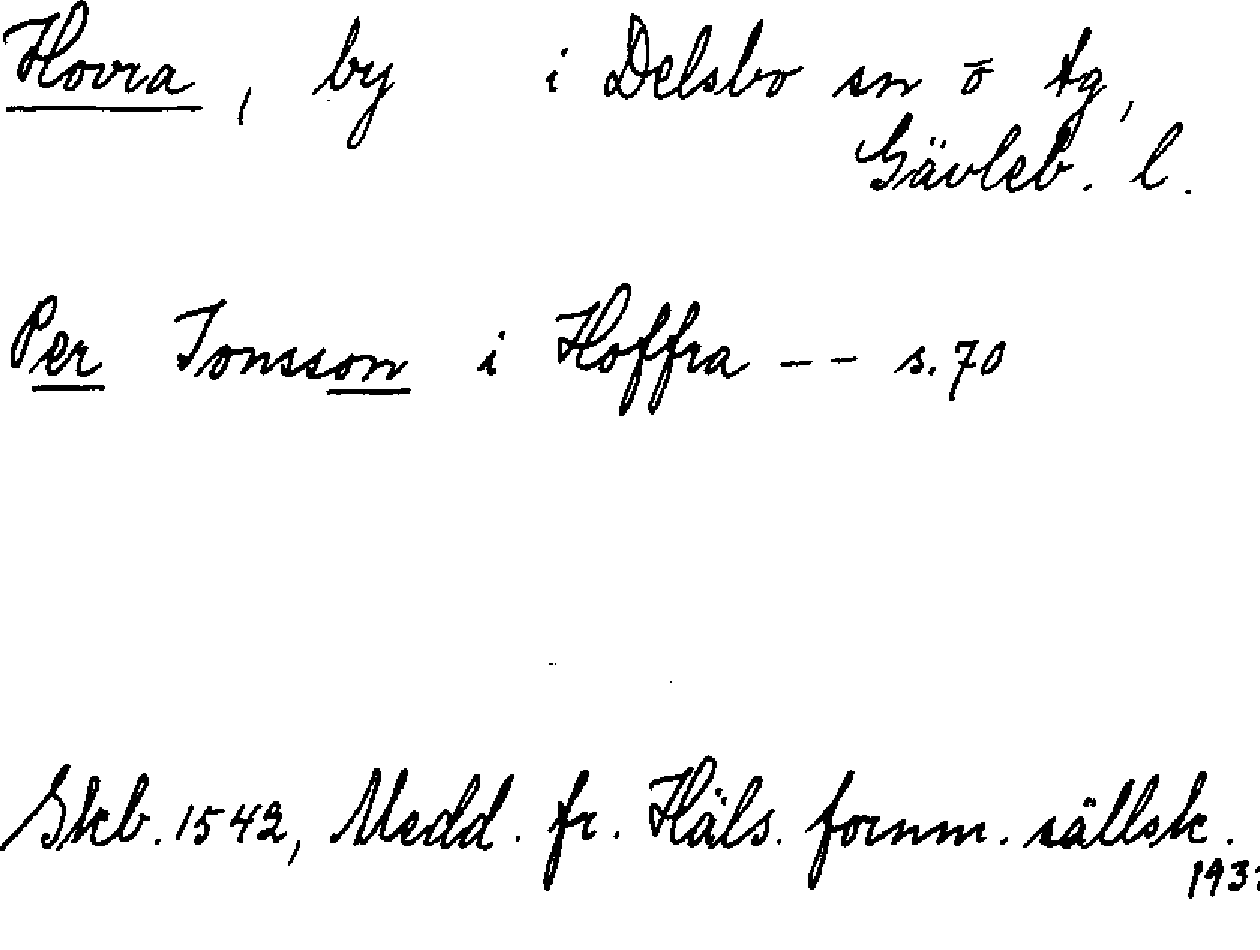 Hovra, by i Delsbo sn o tg,
Gävleb. l.
Per Jonsson i Hoffra -- s. 70
Skb. 1542, Medd. fr. Häls. fornm. sällsk.